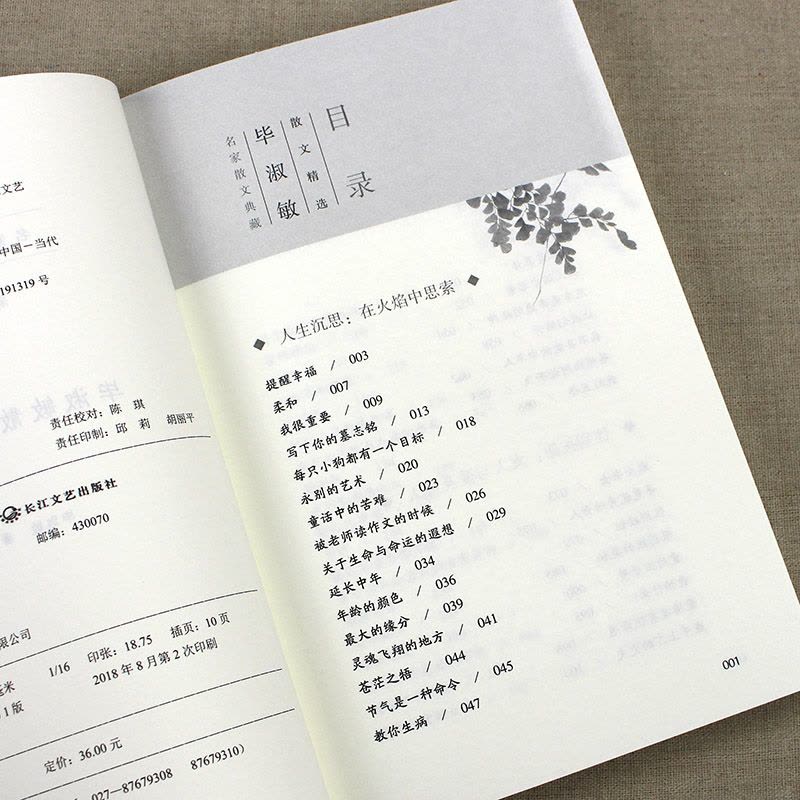 文艺
中国—当代
191319 号
责任校对：陈 琪
责任印制：邱 莉 胡丽平
长江文艺出版社
邮编：430070
限公司
毫米 1/16 印张：18.75 插页：10 页
1 版 2018 年 8 月第 2 次印刷
定价：36.00 元
027—87679308 87679310）
目录
散文精选
毕淑敏
名家散文典藏
◆ 人生沉思：在火焰中思索 ◆
提醒幸福 / 003
柔和 / 007
我很重要 / 009
写下你的墓志铭 / 013
每只小狗都有一个目标 / 018
永别的艺术 / 020
童话中的苦难 / 023
被老师读作文的时候 / 026
关于生命与命运的遐想 / 029
延长中年 / 034
年龄的颜色 / 036
最大的缘分 / 039
灵魂飞翔的地方 / 041
苍茫之悟 / 044
节气是一种命令 / 045
教你生病 / 047
001